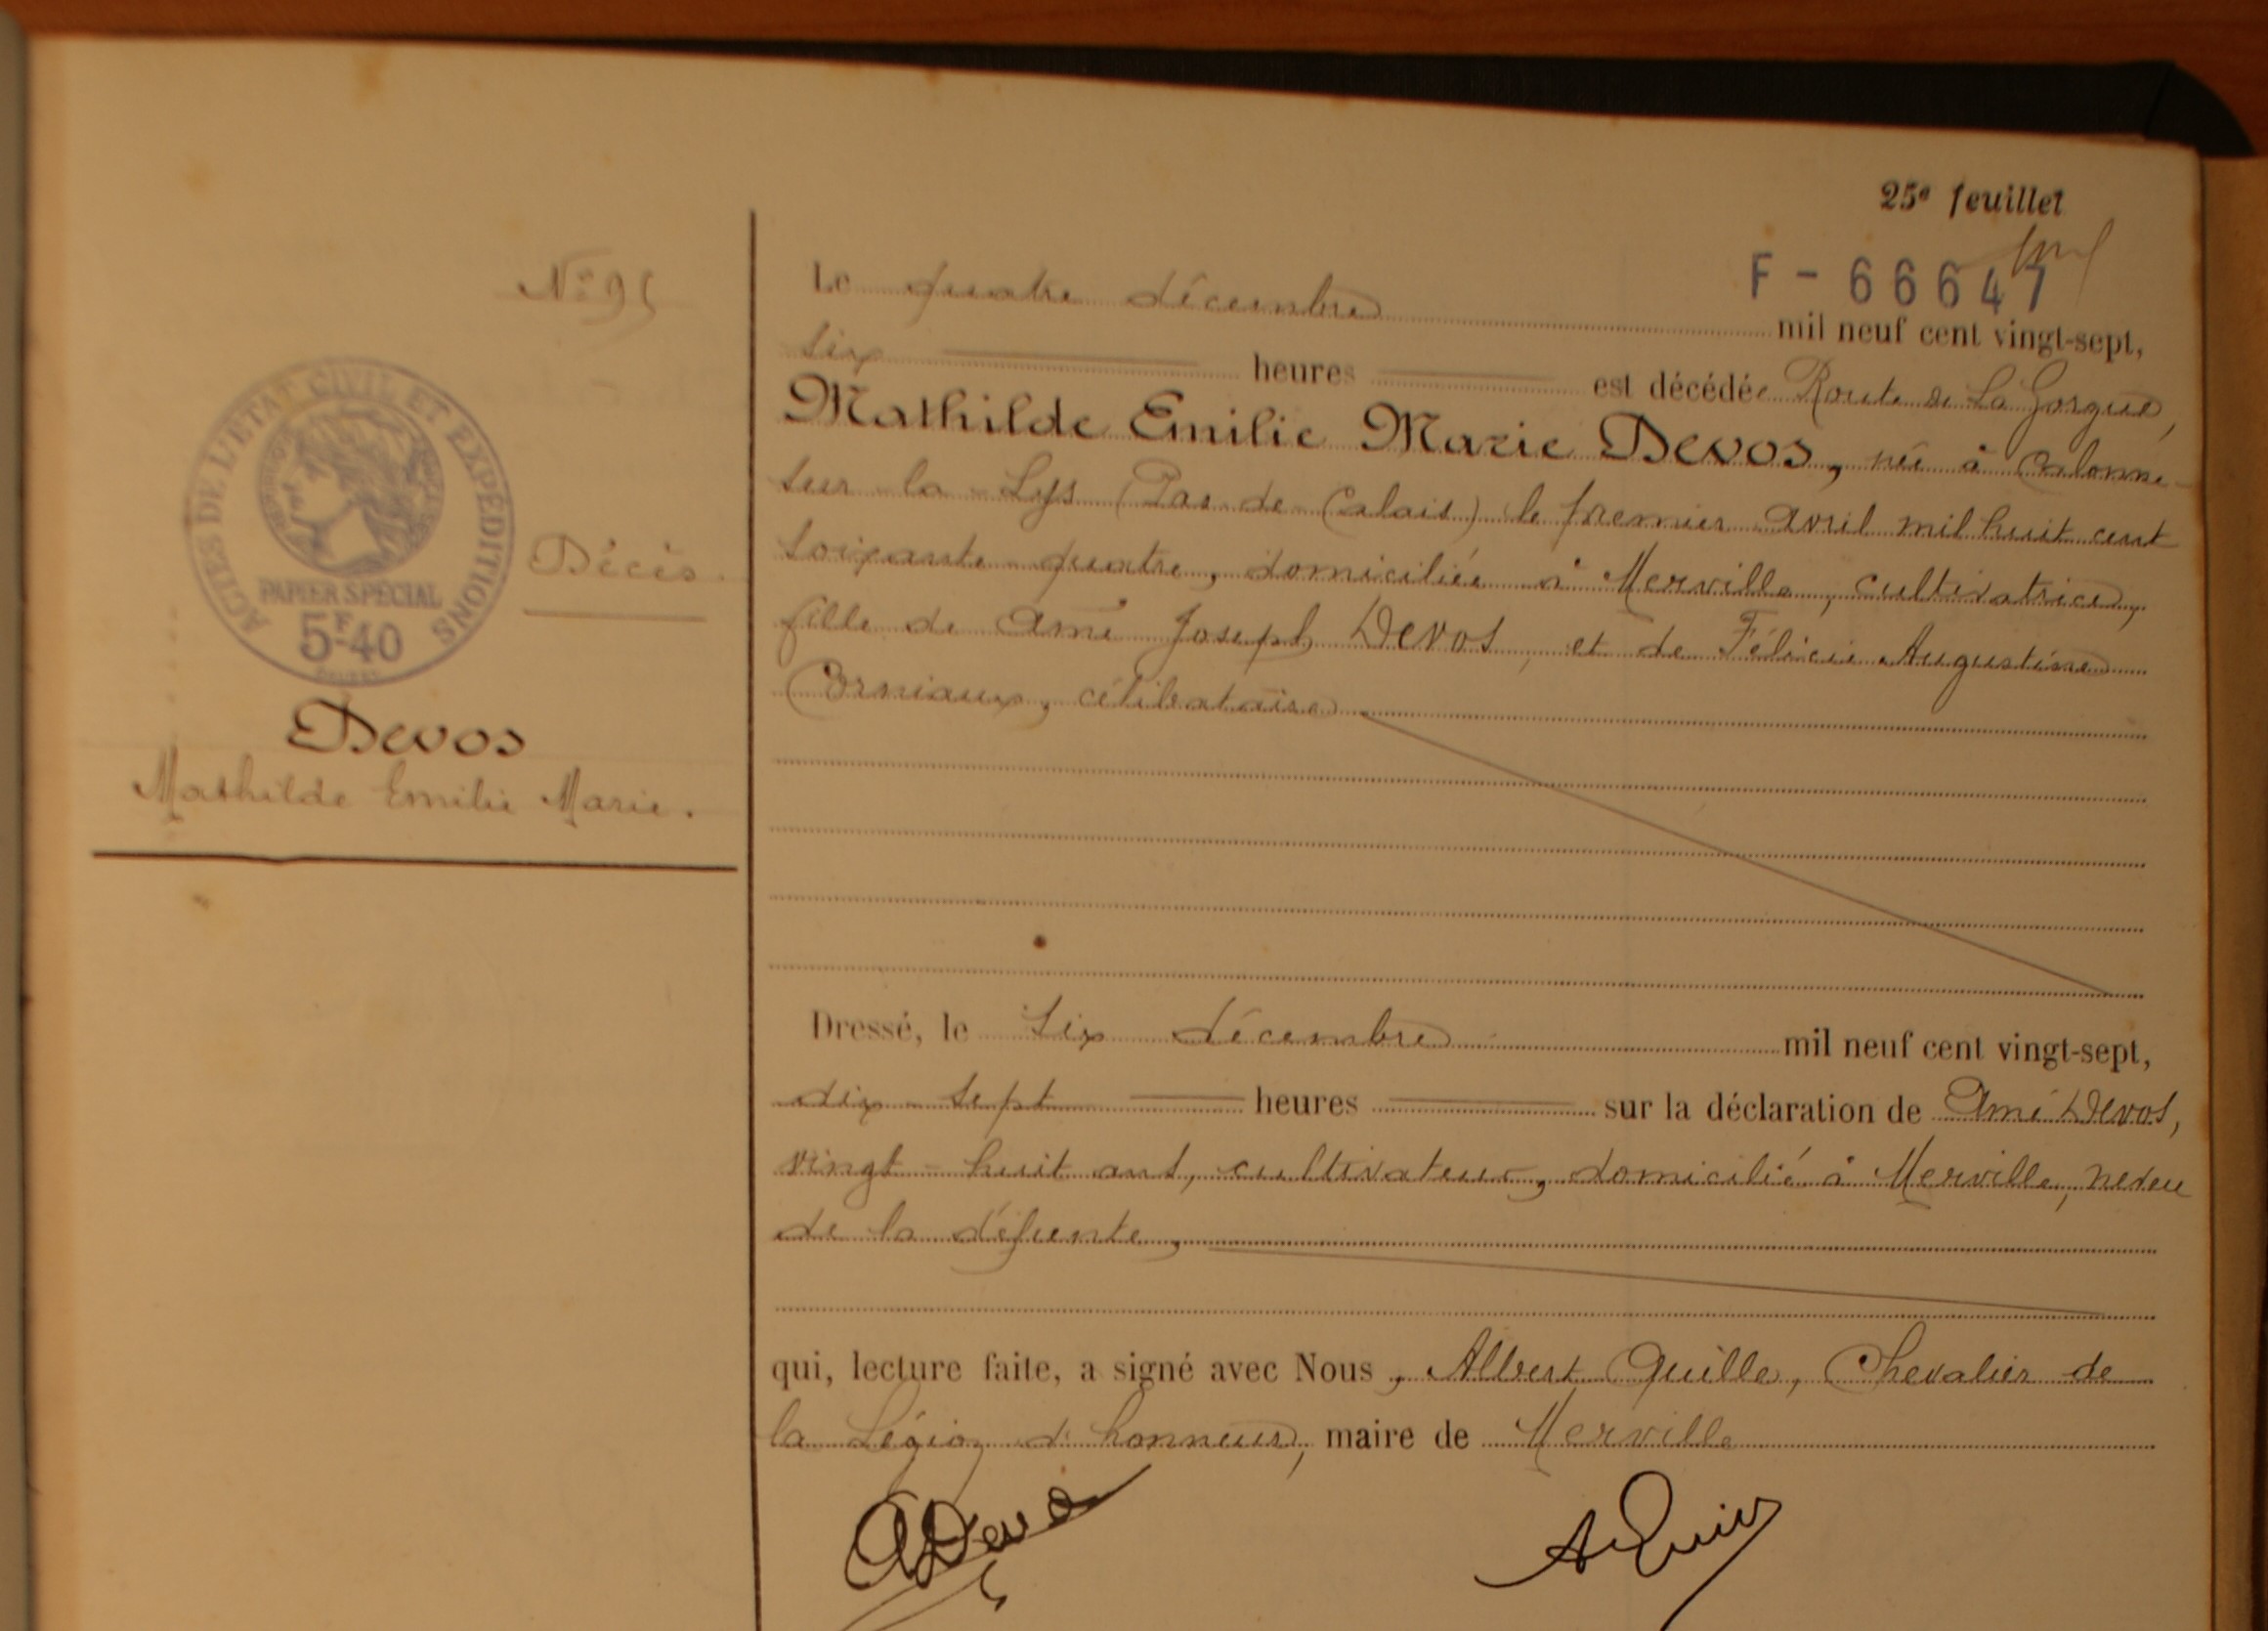 25e feuillet
F - 66647
N° 95
Le quatre décembre mil neuf cent vingt-sept,
six heures est décédée Route de La Gorgue,
Mathilde Emilie Marie Devos, née à Calonne-
sur-la-Lys (Pas-de-Calais) le premier avril mil huit cent
soixante-quatre, domiciliée à Merville, cultivatrice,
fille de Amé Joseph Devos, et de Félicie Augustine
Corniaux, célibataire
ACTES DE L'ÉTAT CIVIL ET EXPÉDITIONS
PAPIER SPÉCIAL
5F.40
Décès.
Devos
Mathilde Emilie Marie.
Dressé, le six décembre mil neuf cent vingt-sept,
dix-sept heures sur la déclaration de Amé Devos,
vingt-huit ans, cultivateur, domicilié à Merville, neveu
de la défunte,
qui, lecture faite, a signé avec Nous, Albert Quille, Chevalier de
la Légion d'honneur, maire de Merville
ADevos